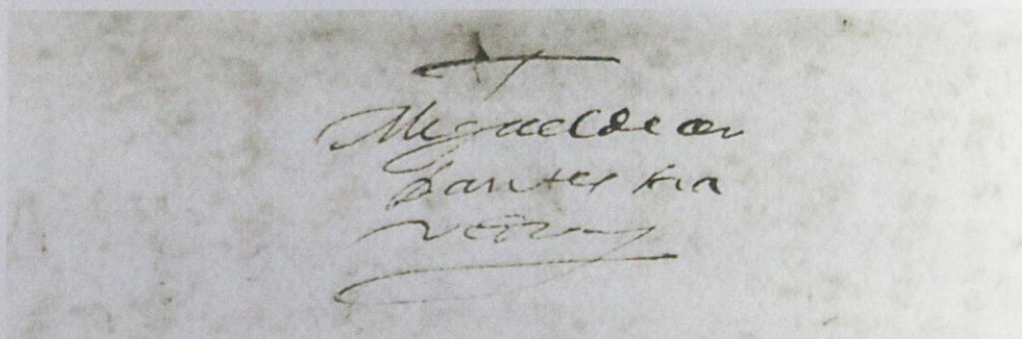 Miguel de cer
bantes saa
vedra